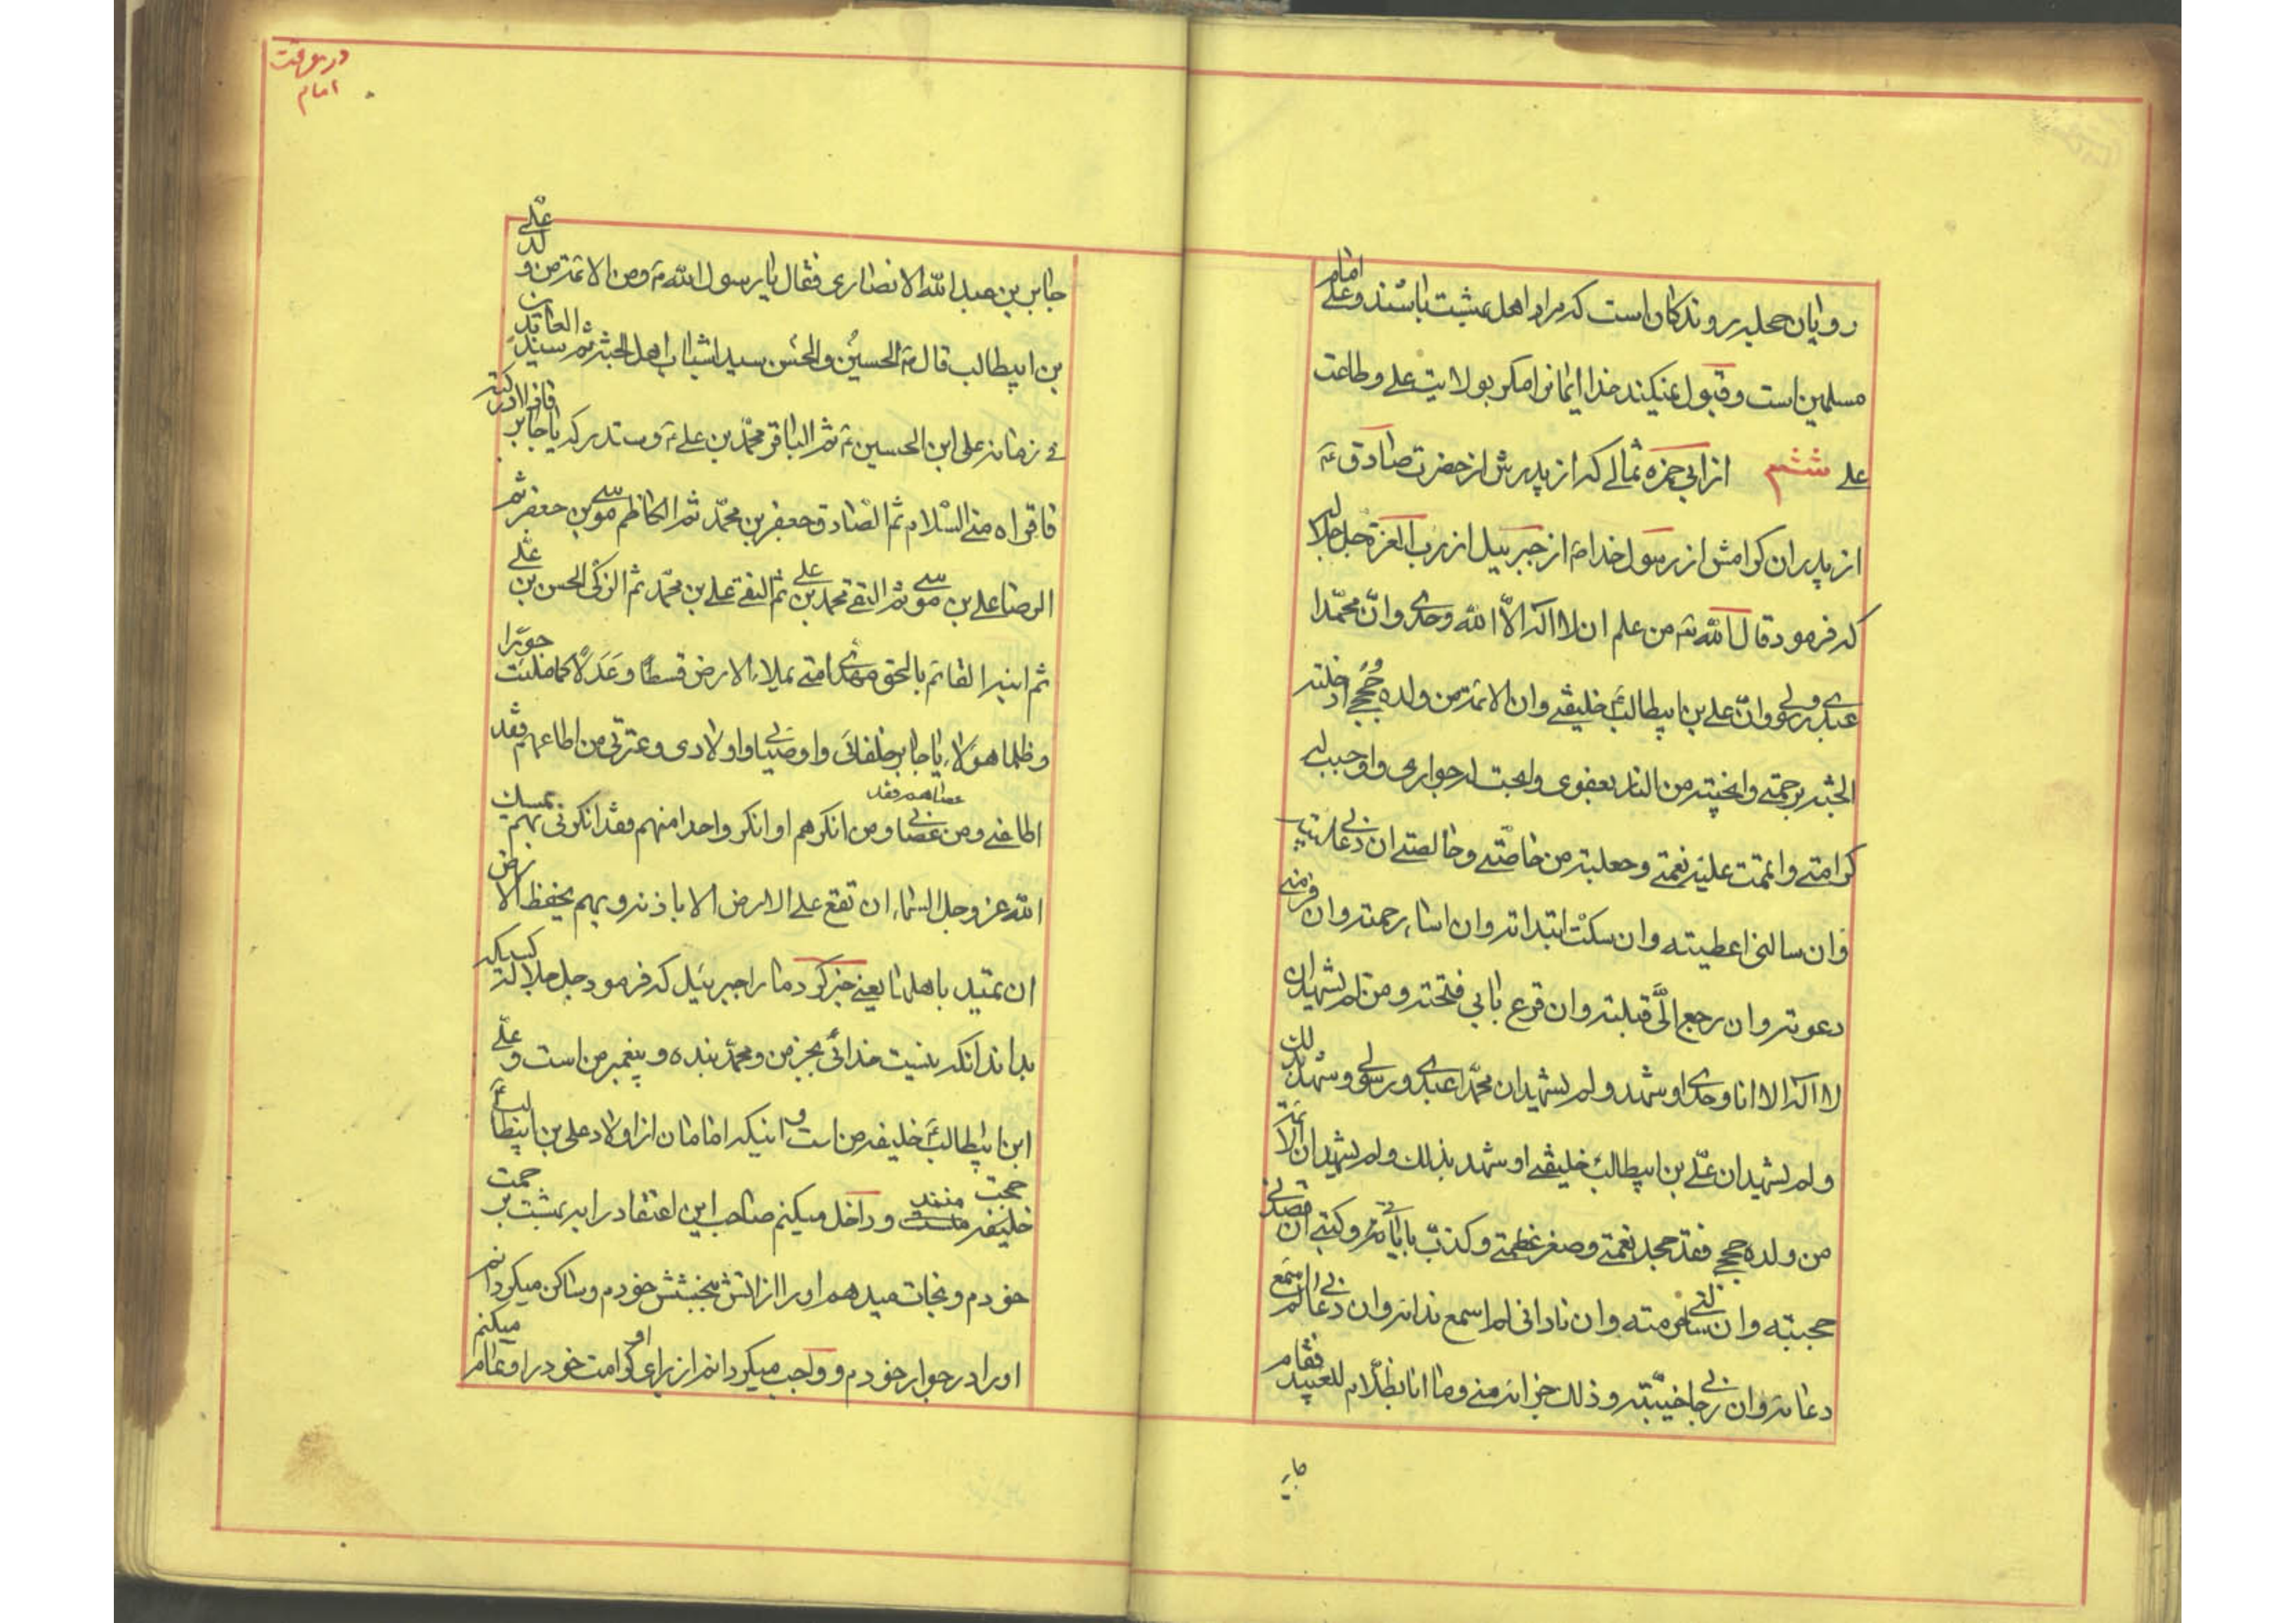 رویان حجله روندکان است که مراد اهل بهشت باشند و علی امام
مسلمین است و قبول نمیکند خدا ایمانرا مکر بولایت علی و طاعت
علی ششم از ابی حمزه ثمالی که از پدرش از حضرت صادق ع
از پدران کرامش از رسول خدا ص از جبرییل از رب العزة جل جلاله
که فرمود قال الله تع من علم ان لا اله الّا الله وحدی وانّ محمّدا
عبدی و رسولی وانّ علی بن ابیطالب خلیفتی وان الائمة من ولده حُججی ادخلته
الجنّة برحمتی وانجیته من النار بعفوی وابحت له جواری واوجبت له
کرامتی واتممت علیه نعمتی وجعلته من خاصّتی وخالصتی ان دعانی لبیته
وان سالنی اعطیته وان سکت ابتدائه وان اساء رحمته وان فرّ منی
دعوته وان رجع الَیّ قبلته وان قرع بابی فتحته ومن لم یشهد ان
لا اله الا انا وحدی او شهد ولم یشهد ان محمّدا عبدی ورسولی او شهد بذلک
ولم یشهد ان علی بن ابیطالب خلیفتی او شهد بذلک ولم یشهد ان الائمّة
من ولده حججی فقد جحد نعمتی وصغر عظمتی وکذّب بایاتی وکتبی ان قصدنی
حجبته وان سالنی حرمته وان نادانی لم اسمع ندائه وان دعانی لم اسمع
دعائه وان رجانی خیّبته وذلک جزائه منی وما انا بظلّام للعبید فقام
جابر
در معرفت
امام
جابر بن عبدالله الانصاری فقال یا رسول الله ص ومن الائمّة من ولد علی
بن ابیطالب قال ص الحسن والحسین سید اشباب اهل الجنّة ثم سید العابدین
فی زمانه علی ابن الحسین ع ثم الباقر محمّد بن علی ع وستدرکه یا جابر فاذا ادرکته
فاقراه منی السّلام ثم الصّادق جعفر بن محمّد ثم الکاظم موسی بن جعفر ثم
الرضا علی بن موسی ثم التقی محمد بن علی ثم النقی علی بن محمّد ثم الزکّی الحسن بن علی
ثم ابنه القائم بالحق مهدی امتی یملاء الارض قسطا وعَدَلًا کما ملئت جورًا
وظلما هولاء یا جابر خلفائی واوصیائی واولادی وعترتی من اطاعهم فقد
اطاعنی ومن عصاهم فقد عصانی ومن انکرهم او انکر واحدا منهم فقد انکرنی بهم یمسک
الله عز وجل السّماء ان تقع علی الارض الا باذنه وبهم یحفظ الارض
ان تمید باهلها یعنی خبر کرد ما را جبرئیل که فرمود جل جلاله کسیکه
بداند انکه نیست خدائی بجز من ومحمّد بنده و پیغمبر من است و علی
ابن ابیطالب خلیفه من است و اینکه امامان از اولاد علی بن ابیطالب
حجت خلیفه منند و داخل میکنم صاحب این اعتقاد را به بهشت برحمت
خودم و نجات میدهم او را از اتش ببخشش خودم و ساکن میکردانم
او را در جوار خودم و واجب میکردانم از برای او کرامت خود را و تمام میکنم